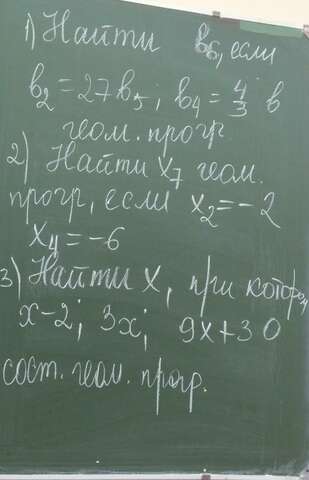 1) Найти b₆, если
b₂ = 27b₅; b₄ = 4/3 в
геом. прогр.
2) Найти x₇ геом.
прогр, если x₂ = -2
x₄ = -6
3) Найти x, при котором
x-2; 3x; 9x+30
сост. геом. прогр.